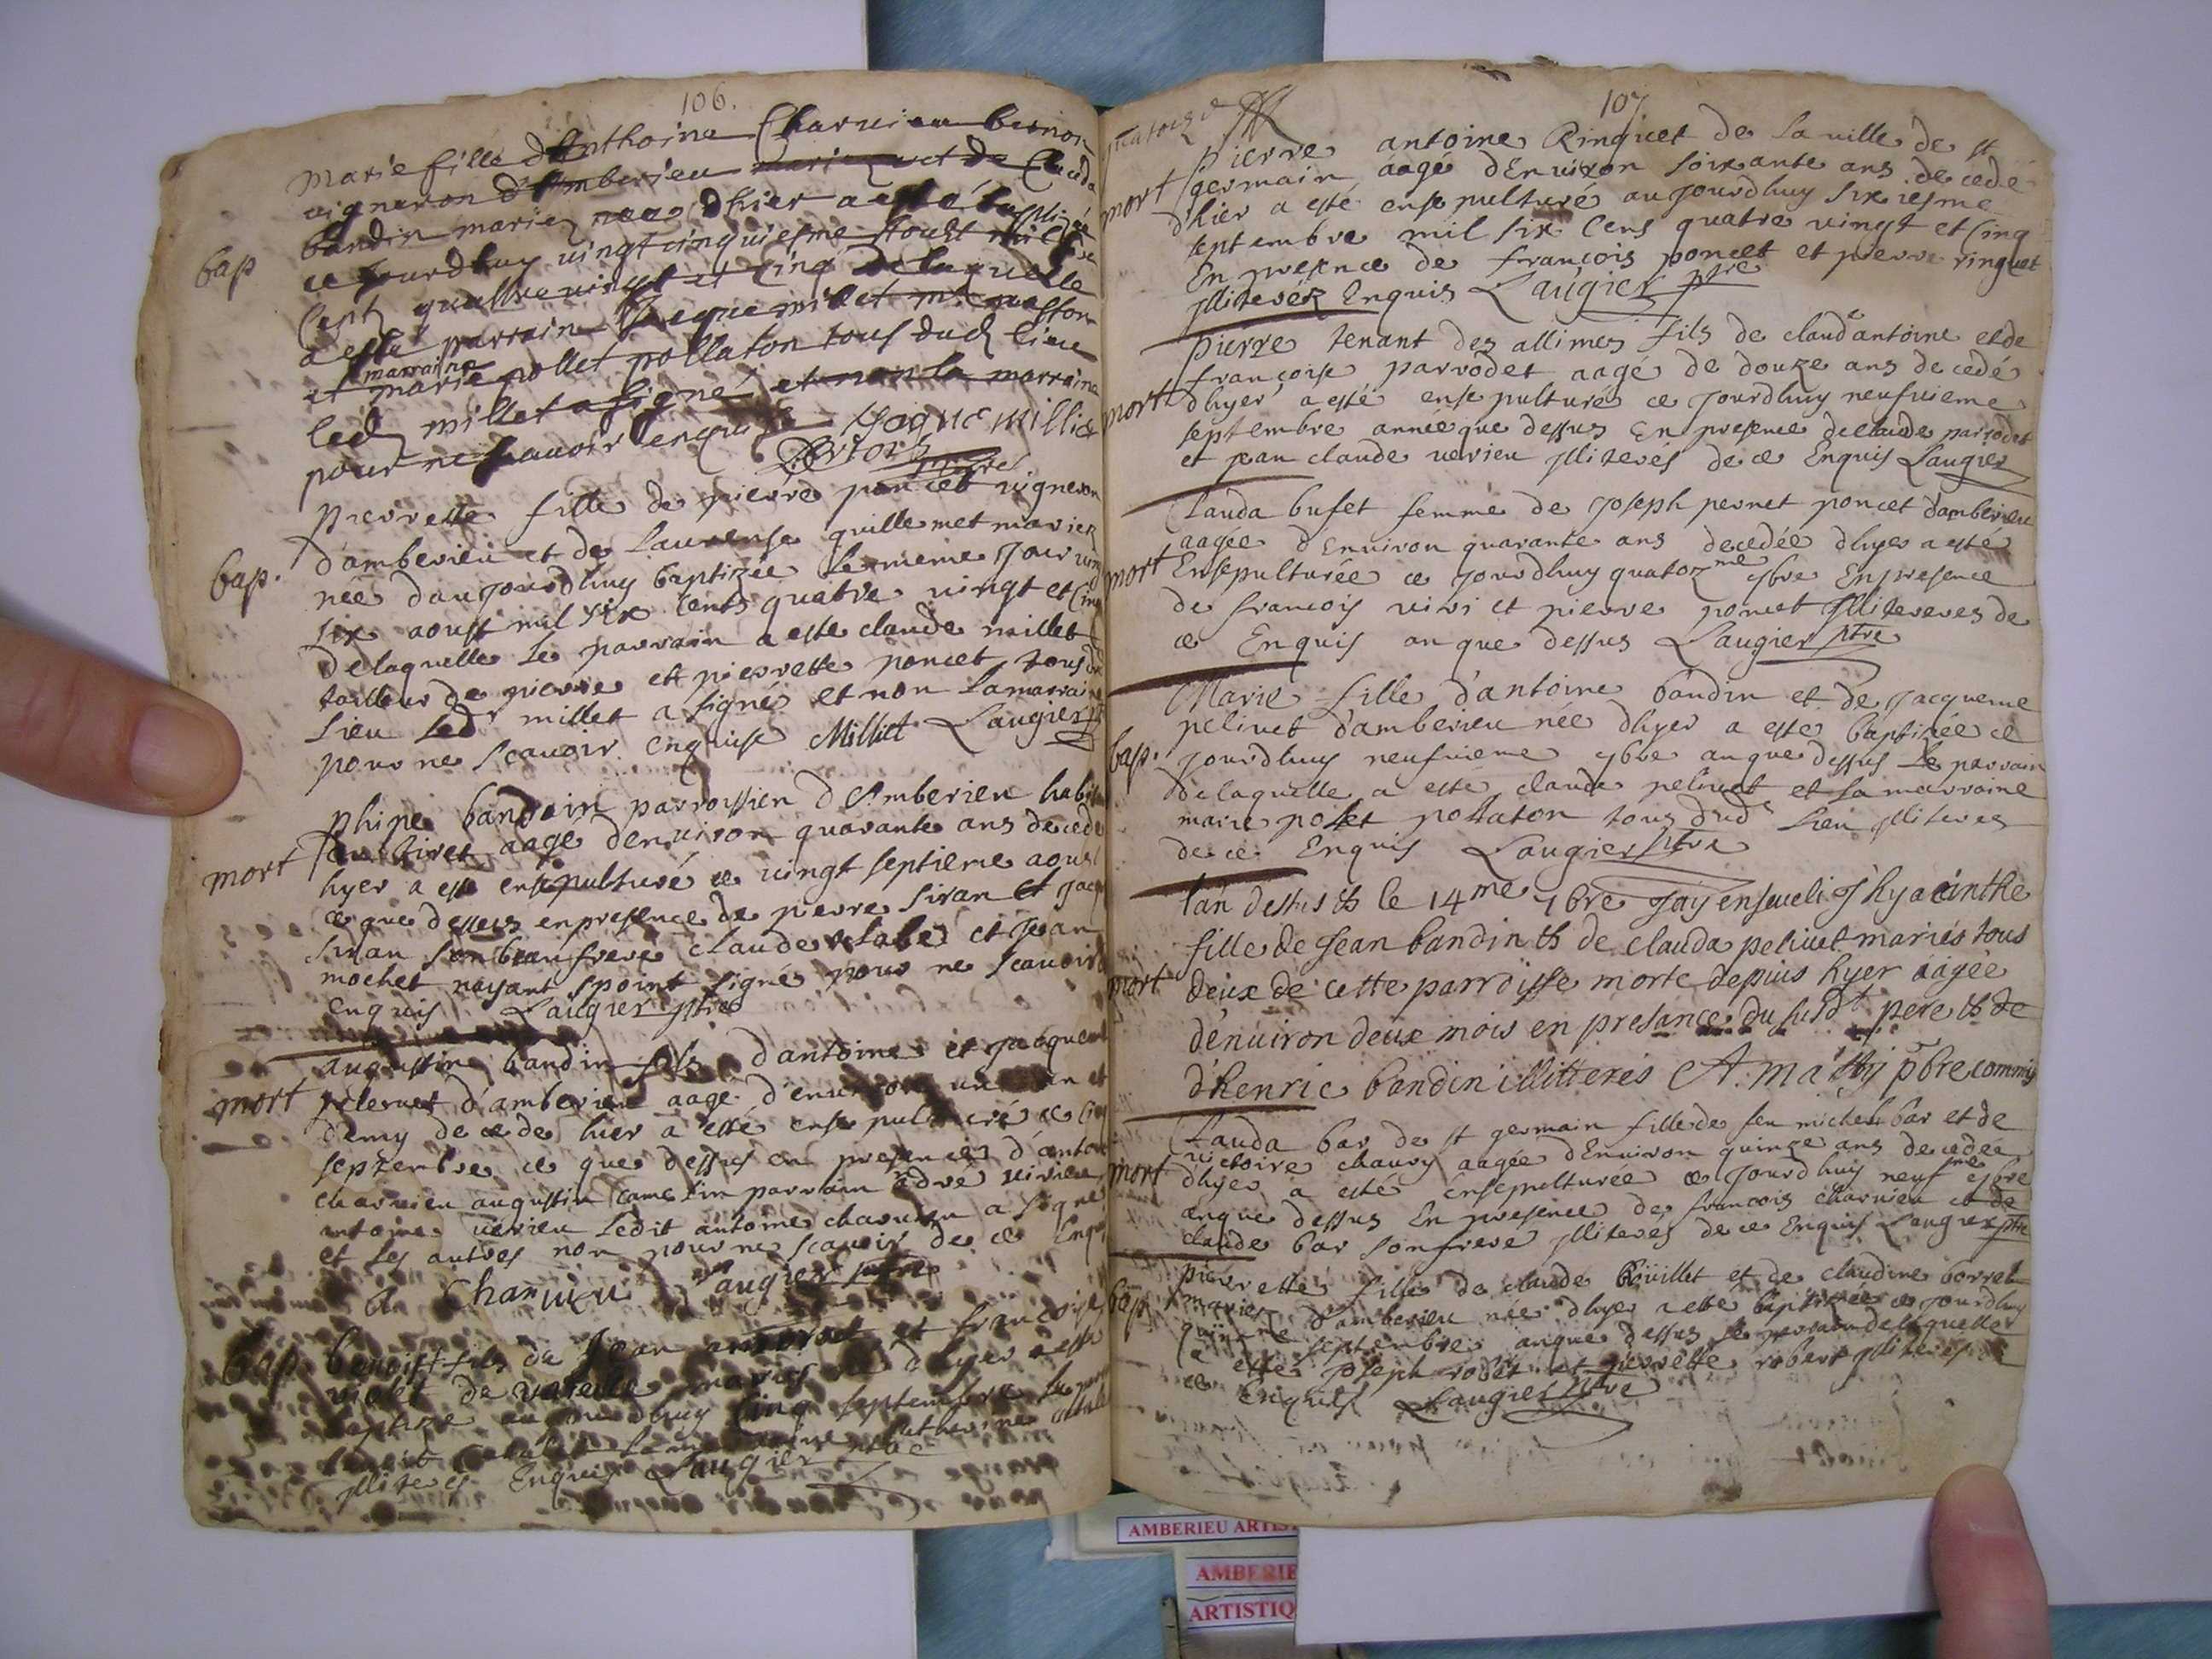 106.
Marie fille d'Anthoine Charuieu
vigneron d'Amberieu et de Clauda
baudin mariez nee d'hier a esté baptizée
bap
ce jourdhuy vingtcinquiesme d'oust mil six
Cents quattre vingt et Cinq de laquelle
a esté parrain Jaque millet
marraine
et marie pollet pollaton tous dud lieu
led millet a signé et non la marraine
pour ne scauoir enquise Jaque Milliet
ptre
pierrette fille de pierre poncet vigneron
d'amberieu et de Laurense quillemet mariez
bap.
née daujourdhuy baptizée le meme jour vint
six aoust mil six Cents quatre vingt et Cinq
delaquelle le parrain a esté claude millet
tailleur de pierre et pierrette poncet tous du
lieu led millet a signé et non la marraine
pour ne scauoir enquise Milliet Laugier ptre
phipe baudin parroissien d'Amberieu
mort
aagé denuiron quarante ans decede
hyer a esté ensepulturé ce vingt septieme aoust
ce que dessus en presence de pierre Siran et Jaque
Siran son beau frere claude et Jean
mochet nayant point signé pour ne scauoir
enquis Laugier ptre
augustin baudin fils d'antoine et Jaqueme
mort
peleuet d'amberieu aagé d'enuiron un an et
demy decede hier a esté ensepulturé ce cinq
septembre ce que dessus en presence d'antoine
charuieu augustin parrain adré
antoine uerieu ledit antoine charuieu a signé
et les autres non pour ne scauoir de ce Enquis
A Charuieu Laugier ptre
bap benoist fils de Jean et francoise
violet de vareille mariés né dhyer a esté
baptizé aujourdhuy Cinq septembre le parrain
Catherine
illiteres Enquis Laugier ptre
107
Pierre antoine Ringuet de la ville de st
mort
germain aagé d'Enuiron soixante ans decedé
d'hier a esté ensepulturé aujourdhuy sixiesme
septembre mil six Cens quatre vingt et Cinq
En presence de francois poncet et pierre ringuet
illiterés Enquis Laugier ptre
Pierre tenant des allimes fils de claud antoine et de
francoise parrodet aagé de douze ans decedé
mort
dhyer a esté ensepulturé ce jourdhuy neufuieme
septembre année que dessus En presence declaude parrodet
et jean claude uerieu illiterés de ce Enquis Laugier
Clauda bufet femme de Joseph pernet poncet d'amberieu
aagée d'Enuiron quarante ans decedée dhyer a esté
mort
Ensepulturée ce jourdhuy quatorzme 7bre Enpresence
de francois viri et pierre poncet illiteres de
ce Enquis an que dessus Laugier ptre
Marie fille d'antoine baudin et de Jacqueme
peliuet d'amberieu née dhyer a esté baptizée ce
bap.
jourdhuy neufuieme 7bre an que dessus Le parrain
delaquelle a esté claude peliuet et La marraine
marie pollet pollaton tous dud lieu illiteres
de ce Enquis Laugier ptre
l'an dessus & le 14me 7bre jay enseueli hyacinthe
fille de Jean baudin & de clauda peliuet mariés tous
mort
deux de cette parroisse morte depuis hyer aagée
d'enuiron deux mois en presance du susdt pere & de
d'henric baudin illitterés A. pbre commis
Clauda bar de st germain fille de feu michel bar et de
victoire chaury aagée d'Enuiron quinze ans decedée
mort
dhyer a esté ensepulturée ce jourdhuy neufme 7bre
anque dessus En presence de francois charuieu et de
claude bar son frere illiterés de ce Enquis Laugier ptre
pierrette fille de claude Bouillet et de claudine borret
bap
mariez d'amberieu née dhyer a esté baptizée ce jourdhuy
septembre anque dessus le parrain delaquelle
a esté Joseph robet et pierrette robert illiteres de
ce Enquis Laugier ptre
AMBERIEU ARTIS
AMBERIE
ARTISTIQ